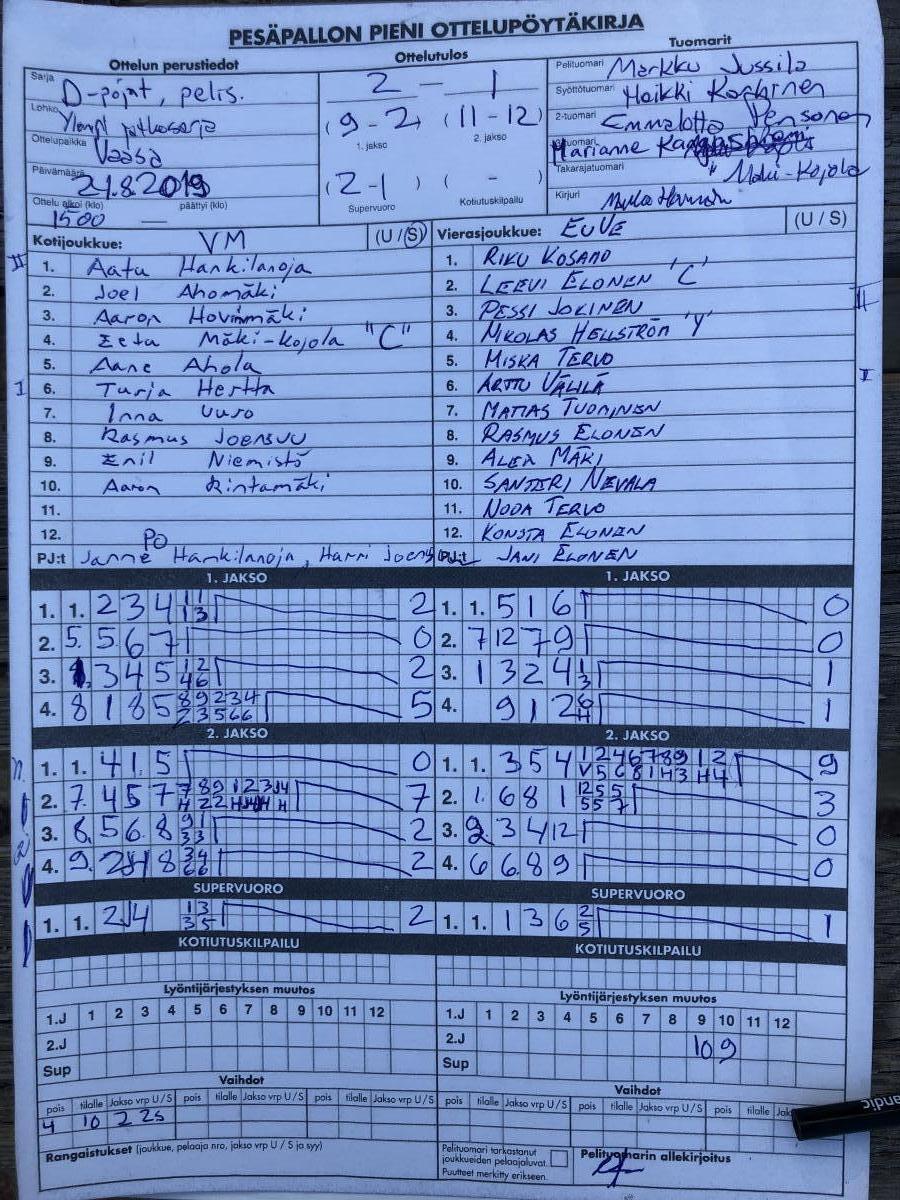 PESÄPALLON PIENI OTTELUPÖYTÄKIRJA
Ottelun perustiedot
Ottelutulos
Tuomarit
Sarja D-pojat, pelis.
Lohko Ylempi jatkosarja
Ottelupaikka Vaasa
Päivämäärä 21.8.2019
Ottelu alkoi (klo) 1500 — päättyi (klo)
2 — 1
(9-2) (11-12)
1. jakso 2. jakso
(2-1) ( - )
Supervuoro Kotiutuskilpailu
Pelituomari Markku Jussila
Syöttötuomari Heikki
2-tuomari Emmalotta
Marianne
Takarajatuomari " Mäki-Kojola
Kirjuri
Kotijoukkue: VM (U / S)
1. Aatu Hankilanoja
2. Joel Ahomäki
3. Aaron Hovinmäki
4. Eeta Mäki-Kojola "C"
5. Aane Ahola
6. Turja Hertta
7. Inna Uuro
8. Rasmus Joensuu
9. Emil Niemistö
10. Aaron Rintamäki
11.
12.
PO
PJ:t Janne Hankilanoja, Harri Joensuu
Vierasjoukkue: EuVe (U / S)
1. RIKU KOSAMO
2. LEEVI ELONEN 'C'
3. PESSI JOKINEN
4. MIKOLAS HELLSTRÖM 'Y'
5. MISKA TERVO
6. ARTTU VÄLILÄ
7. MATIAS TUOMINEN
8. RASMUS ELONEN
9. ALEX MÄKI
10. SANTERI NEVALA
11. NOOA TERVO
12. KONSTA ELONEN
PJ:t JANI ELONEN
1. JAKSO
1. 1. 2 3 4 1 1 1 3 2
2. 5. 5 6 7 0
3. 3 4 5 1 2 4 6 2
4. 8 1 8 5 8 9 2 3 4 2 3 5 6 6 5
1. JAKSO
1. 1. 5 1 6 0
2. 7 12 7 9 0
3. 1 3 2 4 1 3 1
4. 9 1 2 6 4 1
2. JAKSO
1. 1. 4 1. 5 0
2. 7. 4 5 7 7
3. 8. 5 6. 8 9 1 3 3 2
4. 9. 8 3 4 6 6 2
2. JAKSO
1. 1. 3 5 4 1 2 4 6 7 8 9 1 2 V 5 6 8 1 H 3 H 4 9
2. 1. 6 8 1 12 5 5 55 7 3
3. 2. 3 4 12 0
4. 6 6. 8 9 0
SUPERVUORO
1. 1. 2 4 1 3 3 5 2
SUPERVUORO
1. 1. 1 3 6 2 5 1
KOTIUTUSKILPAILU
KOTIUTUSKILPAILU
Lyöntijärjestyksen muutos
1.J 1 2 3 4 5 6 7 8 9 10 11 12
2.J
Sup
Lyöntijärjestyksen muutos
1.J 1 2 3 4 5 6 7 8 9 10 11 12
2.J 10 9
Sup
Vaihdot
pois tilalle Jakso vrp U / S pois tilalle Jakso vrp U / S pois tilalle Jakso vrp U / S
4 10 2 2s
Vaihdot
pois tilalle Jakso vrp U / S pois tilalle Jakso vrp U / S pois tilalle Jak
Rangaistukset (joukkue, pelaaja nro, jakso vrp U / S ja syy)
Pelituomari tarkastanut
joukkueiden pelaajaluvat.
Puutteet merkitty erikseen.
Pelituomarin allekirjoitus